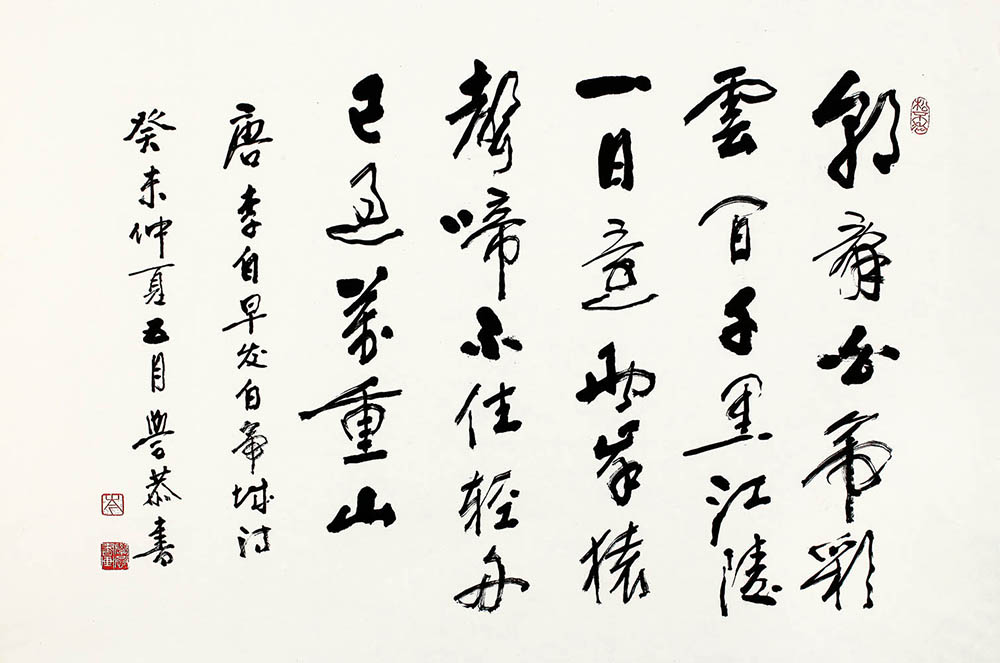 朝辭白帝彩
雲間千里江陵
一日還兩岸猿
聲啼不住輕舟
已過萬重山
唐李白早发白帝城诗
癸未仲夏五月學恭書
岑